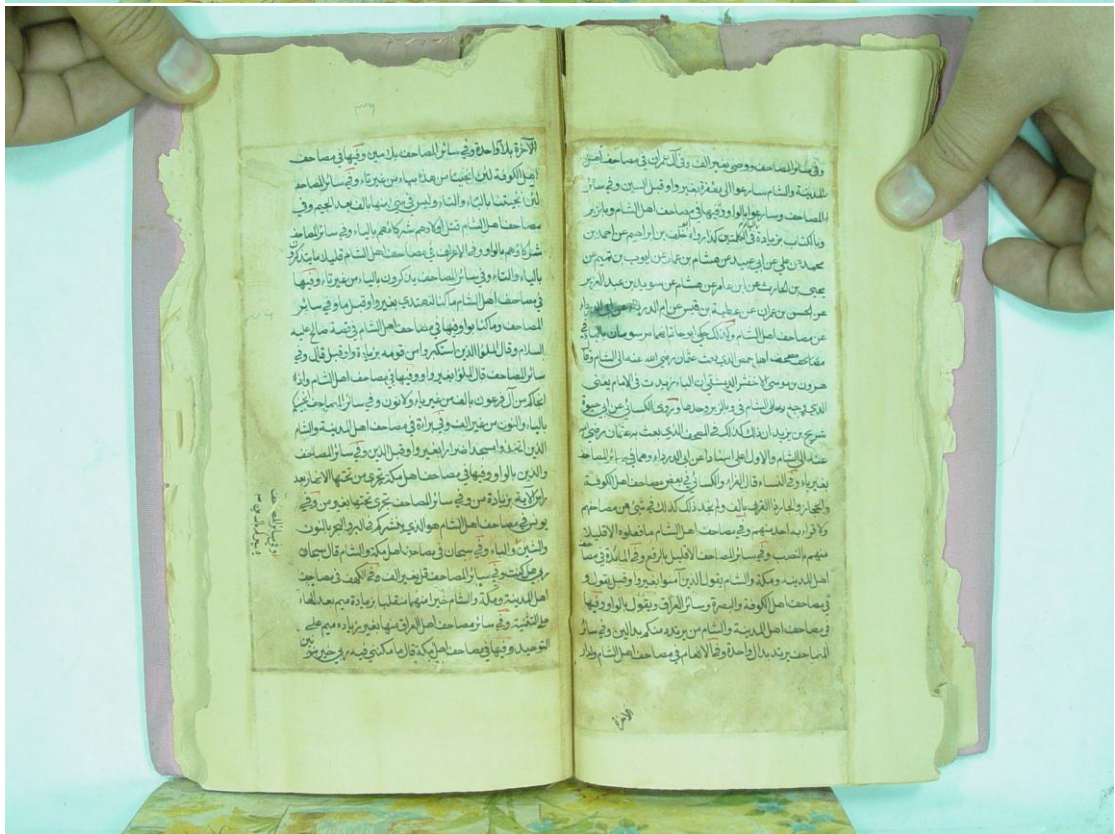 وفي سائر المصاحف ووصى بغير الف وفي آل عمران في مصاحف أهل
المدينة والشام سارعوا الى مغفرة بغير واو قبل السين وفي سائر
المصاحف وسارعوا بالواو وفيها في مصاحف اهل الشام وبالزبر
وبالكتاب بزيادة في الكلمتين كذا رواه خلف بن ابراهيم عن احمد بن
محمد عن علي عن ابي عبيد عن هشام بن عمار عن ايوب بن تميم عن
يحيى بن الحارث عن ابن عامر عن هشام عن سويد بن عبد العزيز
عن الحسن بن عمران عن عطية بن قيس عن ام الدرداء عن ابي الدرداء
عن مصاحف اهل الشام وكذلك حكى ابو حاتم انهما مرسومان بالباء في
مصحف اهل حمص الذي بعث عثمان رضي الله عنه الى الشام وقال
هرون بن موسى الاخفش الدمشقي ان الباء زيدت في الامام يعنى
الذي وجه به الى الشام في وبالزبر وحدها وروى الكسائي عن ابي حيوة
شريح بن يزيد ان ذلك كذلك في المصحف الذي بعث به عثمان رضي الله
عنه الى الشام والاول اعلى اسنادا عن ابى الدرداء وهما في سائر المصاحف
بغير باء وفي النساء قال الفراء والكسائي في بعض مصاحف اهل الكوفة
والجار ذا القربى بالف ولم نجد ذلك كذلك في شئ من مصاحفهم
ولا قرأ به احد منهم وفي مصاحف اهل الشام ما فعلوه الا قليلا
منهم بالنصب وفي سائر المصاحف الا قليل بالرفع وفي المائدة في مصاحف
اهل المدينة ومكة والشام يقول الذين آمنوا بغير واو قبل يقول و
في مصاحف اهل الكوفة والبصرة وسائر العراق ويقول بالواو وفيها
في مصاحف اهل المدينة والشام من يرتدد منكم بدالين وفي سائر
المصاحف يرتد بدال واحدة وفي الانعام في مصاحف اهل الشام ولدار
الآخرة
٣٦
الآخرة بلام واحدة وفي سائر المصاحف بلامين وفيها في مصاحف
اهل الكوفة لئن انجينا من هذه بياء من غير تاء وفي سائر المصاحف
لئن انجيتنا بالياء والتاء وليس في شئ منها بالف بعد الجيم وفي
مصاحف اهل الشام قتل اولادهم شركائهم بالياء وفي سائر المصاحف
شركاؤهم بالواو وفي الاعراف في مصاحف اهل الشام قليلا ما يتذكرون
بالياء والتاء وفي سائر المصاحف تذكرون بالتاء من غير ياء وفيها
في مصاحف اهل الشام ما كنا لنهتدي بغير واو قبل ما وفي سائر
المصاحف وما كنا بواو وفيها في مصاحف اهل الشام في قصة صالح عليه
السلام وقال الملؤا الذين استكبروا من قومه بزيادة واو قبل قال وفي
سائر المصاحف قال الملؤا بغير واو وفيها في مصاحف اهل الشام واذ
انجاكم من آل فرعون بالف من غير ياء ولا نون وفي سائر المصاحف انجيناكم
بالياء والنون من غير الف وفي براءة في مصاحف اهل المدينة والشام
الذين اتخذوا مسجدا ضرارا بغير واو قبل الذين وفي سائر المصاحف
والذين بالواو وفيها في مصاحف اهل مكة تجري من تحتها الانهار بعد
راس الاية بزيادة من وفي سائر المصاحف تجرى تحتها بغير من وفي
يونس في مصاحف اهل الشام هو الذي ينشركم في البر والبحر بالنون
والشين وفي سبحان في مصاحف اهل مكة والشام قال سبحان
ربي هل كنت وفي سائر المصاحف قل بغير الف وفي الكهف في مصاحف
اهل المدينة ومكة والشام خيرا منهما منقلبا بزيادة ميم بعد الهاء
على التثنية وفي سائر مصاحف اهل العراق منها بغير زيادة ميم على
التوحيد وفيها في مصاحف اهل مكة قال ما مكنني فيه ربي خير بنونين